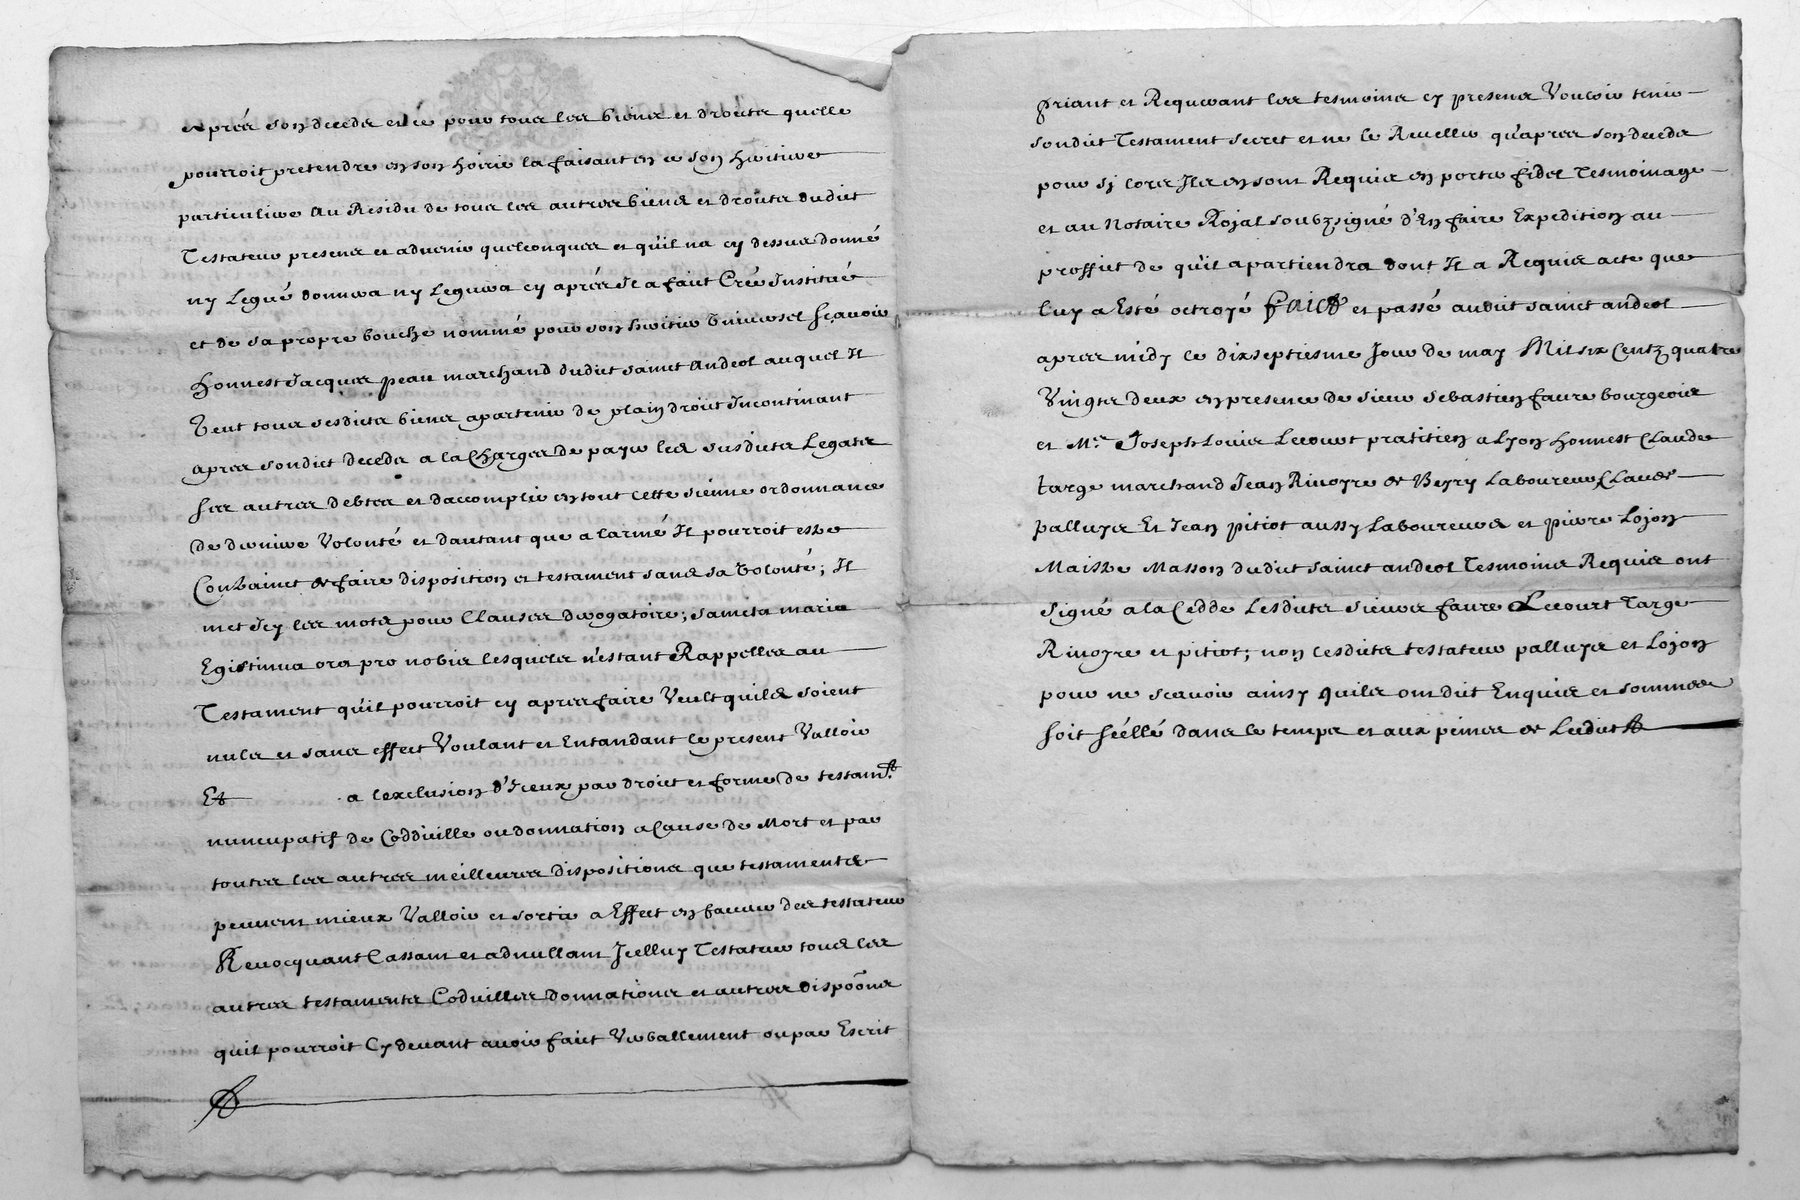 apres son deceds et ce pour tous les biens et droicts quelle
pourroit pretendre en son hoirie la faisant en ce son heritiere
particuliere Au Residu de tous les autres biens et droicts dudict
Testateur presens et advenir quelconques et quil na cy dessus donné
ny Legué donnera ny Leguera cy aprés Il a faict Creé Institué
et de sa propre bouche nommé pour son heritier Universel sçavoir
honnest Jacques peau marchand dudict sainct Andeol auquel Il
Veut tous sesdicts biens apartenir de plain droict Incontinant
apres sondict deceds a la Charge de payer les susdicts Legats
ses autres debtes et daccomplir en tout cette sienne ordonnance
de derniere Volonté et dautant que a larmé Il pourroit estre
Contrainct de faire disposition et testament sans sa Volonté; Il
met Icy les mots pour Clauses derogatoire; sancta maria
Egistinua ora pro nobis lesquels n'estant Rappelles au
Testament qu'il pourroit cy apres faire Veult quils soient
nuls et sans effect Voulant et Entandant le present Valloir
Et a lexclusion d'Iceux par droict et forme de testamt.
nuncupatif de Coddicille ou donnation a Cause de Mort et par
toutes les autres meilleures dispositions que testaments
peuvent mieux Valloir et sortir a Effect en faveur des testateur
Revocquant Cassant et adnullant Icelluy Testateur tous les
autres testaments Codicilles donnations et autres dispoôns
quil pourroit Cy devant avoir faict Verballement ou par Escrit
priant et Requerant les tesmoins cy presens Vouloir tenir
sondict Testament secret et ne le Reveller qu'apres son deceds
pour si lors Ils en sont Requis en porter fidel Tesmoinage
et au Notaire Rojal soubzsigné d'En faire Expedition au
proffict de qu'il apartiendra dont Il a Requis acte que
luy a Esté octroyé faict et passé audit sainct andeol
apres midy le dixseptiesme Jour de may Mil six Centz quatre
Vingts deux en presence de sieur sebastien faure bourgeois
et Mre Joseph Louis Lecourt pratitien a Lyon honnest Claude
targe marchand Jean Rivoyre de Beyry Laboureur Claude
palluys Et Jean pitiot aussy Laboureurs et pierre Lojon
Maistre Masson dudict sainct andeol Tesmoins Requis ont
signé a la Cedde Lesdicts sieurs faure Lecourt Targe
Rivoyre et pitiot; non lesdicts testateur palluys et Lojon
pour ne scavoir ainsy quils ont dict Enquis et sommes
soit séellé dans le temps et aux peines de Ledict